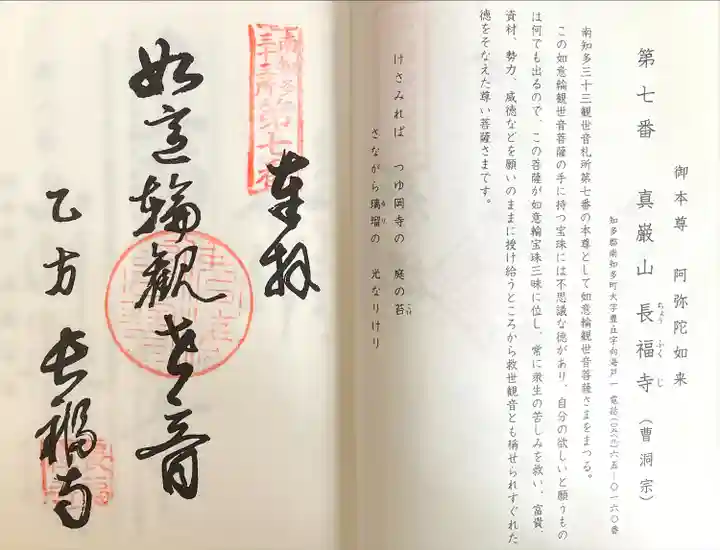 御本尊　阿弥陀如来
第七番　真巌山長福寺（曹洞宗）
ちょう　ふく　じ
知多郡南知多町大字豊丘字向海戸一　電話（〇五六九）六五－〇一六〇番
南知多三十三観世音札所第七番の本尊として如意輪観世音菩薩さまをまつる。
この如意輪観世音菩薩の手に持つ宝珠には不思議な徳があり、自分の欲しいと願うもの
は何でも出るので、この菩薩が如意輪宝珠三昧に位し、常に衆生の苦しみを救い、富貴、
資材、勢力、威徳などを願いのままに授け給うところから救世観音とも称せられすぐれた
徳をそなえた尊い菩薩さまです。
けさみれば　つゆ岡寺の　庭の苔
こけ
さながら璃瑠の　光なりけり
るり
奉拝
南知多
三十三所第七番
如意輪観世音
乙方　長福寺